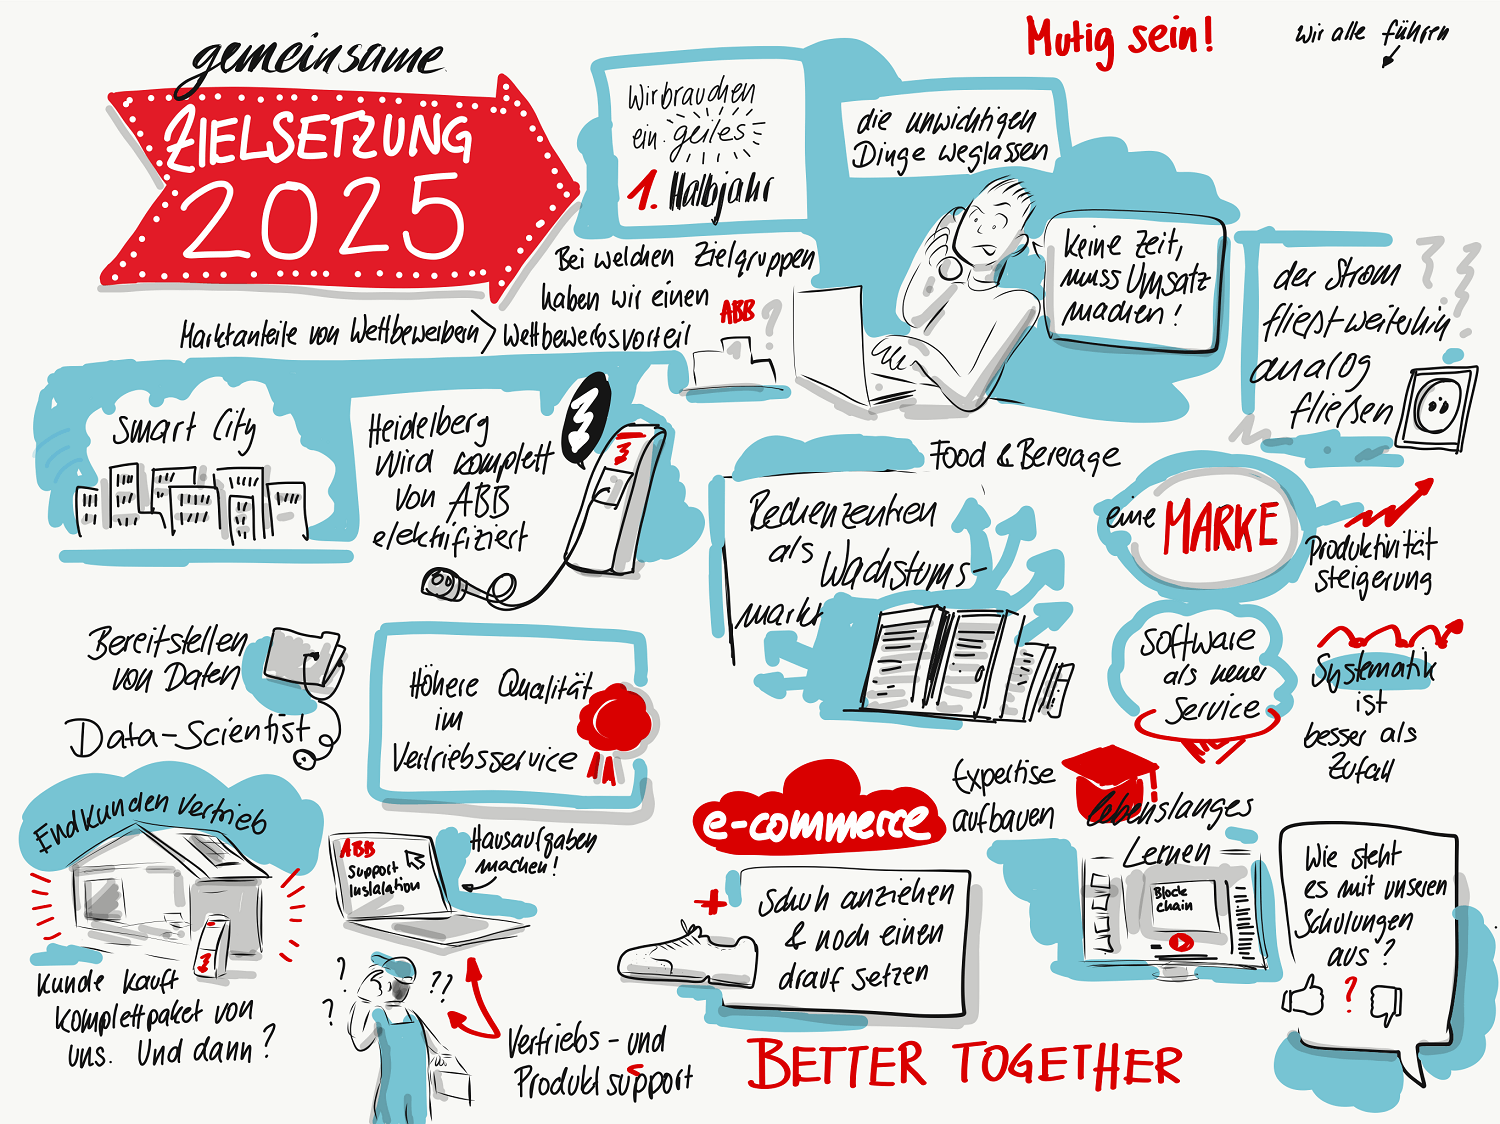 gemeinsame
ZIELSETZUNG
2025
Wir brauchen
ein geiles
1. Halbjahr
die unwichtigen
Dinge weglassen
Mutig sein!
wir alle führen
keine Zeit,
muss Umsatz
machen!
der Strom
fließt weiterhin
analog
fließen
Bei welchen Zielgruppen
haben wir einen
Wettbewerbsvorteil
ABB
?
Marktanteile von Wettbewerbern >
Smart City
Heidelberg
wird komplett
von ABB
elektrifiziert
Food & Bererage
Rechenzentren
als Wachstums-
markt
eine MARKE
Produktivität
steigerung
Software
als neuer
Service
Systematik
ist
besser als
Zufall
Bereitstellen
von Daten
Data-Scientist
Höhere Qualität
im
Vertriebsservice
Endkunden vertrieb
Kunde kauft
Komplettpaket von
uns. Und dann?
ABB
Support
Instalation
Hausaufgaben
machen!
?
?
??
Vertriebs- und
Produktsupport
e-commerce
+
Schuh anziehen
& noch einen
drauf setzen
Expertise
aufbauen
lebenslanges
Lernen
Block
chain
Wie steht
es mit unseren
Schulungen
aus?
?
BETTER TOGETHER